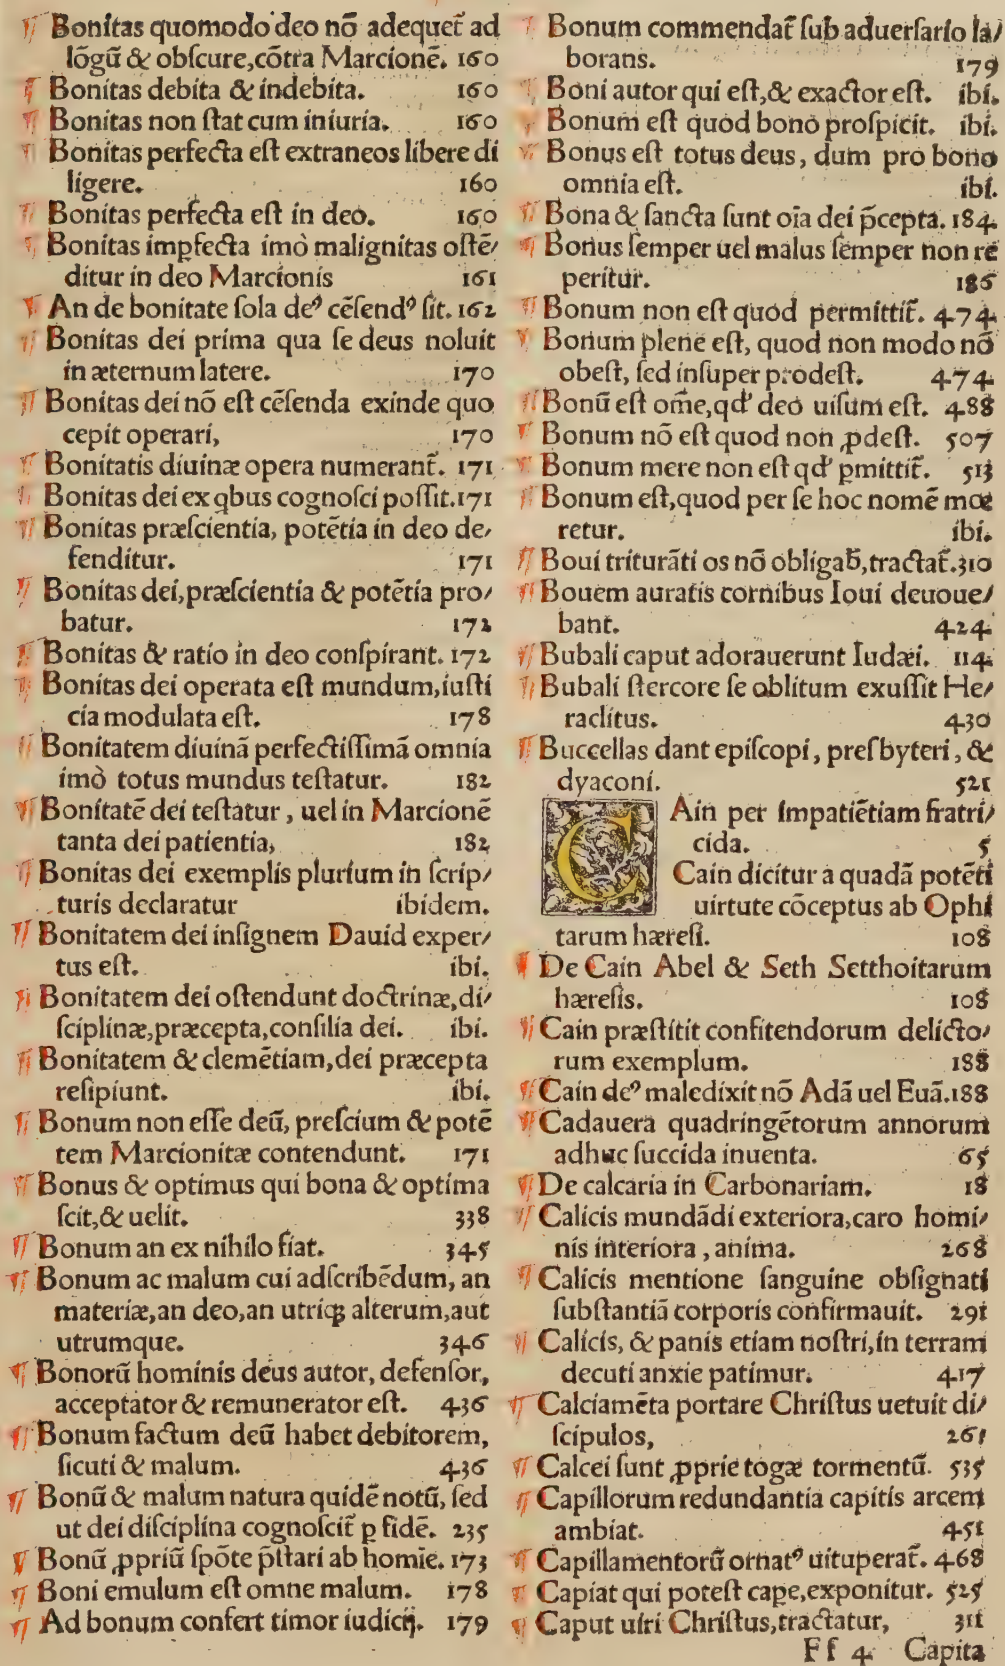 Bonitas quomodo deo nō adequet᷑ ad
lōgū & obſcure, cōtra Marcionē. 160
Bonitas debita & indebita. 160
Bonitas non ſtat cum iniuria. 160
Bonitas perfecta eſt extraneos libere di
ligere. 160
Bonitas perfecta eſt in deo. 160
Bonitas impfecta imò malignitas oſtē/
ditur in deo Marcionis 161
An de bonitate ſola deꝰ cēſendꝰ ſit. 162
Bonitas dei prima qua ſe deus noluit
in æternum latere. 170
Bonitas dei nō eſt cēſenda exinde quo
cepit operari, 170
Bonitatis diuinæ opera numerant᷑. 171
Bonitas dei ex qbus cognoſci poſſit. 171
Bonitas præſcientia, potētia in deo de/
fenditur. 171
Bonitas dei, præſcientia & potētia pro/
batur. 172
Bonitas & ratio in deo conſpirant. 172
Bonitas dei operata eſt mundum, iuſti
cia modulata eſt. 178
Bonitatem diuinā perfectiſſimā omnia
imò totus mundus teſtatur. 182
Bonitatē dei teſtatur, uel in Marcionē
tanta dei patientia, 182
Bonitas dei exemplis plurium in ſcrip/
turis declaratur ibidem.
Bonitatem dei inſignem Dauid exper/
tus eſt. ibi.
Bonitatem dei oſtendunt doctrinæ, di/
ſciplinæ, præcepta, conſilia dei. ibi.
Bonitatem & clemētiam, dei præcepta
reſipiunt. ibi.
Bonum non eſſe deū, preſcium & potē
tem Marcionitæ contendunt. 171
Bonus & optimus qui bona & optima
ſcit, & uelit. 338
Bonum an ex nihilo fiat. 345
Bonum ac malum cui adſcribēdum, an
materiæ, an deo, an utriqꝫ alterum, aut
utrumque. 346
Bonorū hominis deus autor, defenſor,
acceptator & remunerator eſt. 436
Bonum factum deū habet debitorem,
ſicuti & malum. 436
Bonū & malum natura quidē notū, ſed
ut dei diſciplina cognoſcit᷑ p fidē. 235
Bonū ꝓpriū ſpōte p̄ſtari ab homie. 173
Boni emulum eſt omne malum. 178
Ad bonum confert timor iudicij. 179
Bonum commendat᷑ ſub aduerſario la/
borans. 179
Boni autor qui eſt, & exactor eſt. ibi.
Bonum eſt quod bono proſpicit. ibi.
Bonus eſt totus deus, dum pro bono
omnia eſt. ibi.
Bona & ſancta ſunt oīa dei p̄cepta. 184
Bonus ſemper uel malus ſemper non re
peritur. 186
Bonum non eſt quod permittit᷑. 474
Bonum plene eſt, quod non modo nō
obeſt, ſed inſuper prodeſt. 474
Bonū eſt om̄e, qd' deo uiſum eſt. 488
Bonum nō eſt quod non ꝓdeſt. 507
Bonum mere non eſt qd' pmittit᷑. 513
Bonum eſt, quod per ſe hoc nomē mœ
retur. ibi.
Boui triturāti os nō obligab̄, tractat᷑. 310
Bouem auratis cornibus Ioui deuoue/
bant. 424
Bubali caput adorauerunt Iudæi. 114
Bubali ſtercore ſe oblitum exuſſit He/
raclitus. 430
Buccellas dant epiſcopi, preſbyteri, &
dyaconi. 521
CAin per impatiētiam fratri/
cida. 5
Cain dicitur a quadā potēti
uirtute cōceptus ab Ophi
tarum hæreſi. 108
De Cain Abel & Seth Setthoitarum
hæreſis. 108
Cain præſtitit confitendorum delicto/
rum exemplum. 188
Cain deꝰ maledixit nō Adā uel Euā. 188
Cadauera quadringētorum annorum
adhuc ſuccida inuenta. 65
De calcaria in Carbonariam. 18
Calicis mundādi exteriora, caro homi/
nis interiora, anima. 268
Calicis mentione ſanguine obſignati
ſubſtantiā corporis confirmauit. 291
Calicis, & panis etiam noſtri, in terram
decuti anxie patimur. 417
Calciamēta portare Chriſtus uetuit di/
ſcipulos, 261
Calcei ſunt ꝓprie togæ tormentū. 535
Capillorum redundantia capitis arcem
ambiat. 451
Capillamentorū ornatꝰ uituperat᷑. 468
Capiat qui poteſt cape, exponitur. 525
Caput uiri Chriſtus, tractatur, 311
Ff 4 Capita